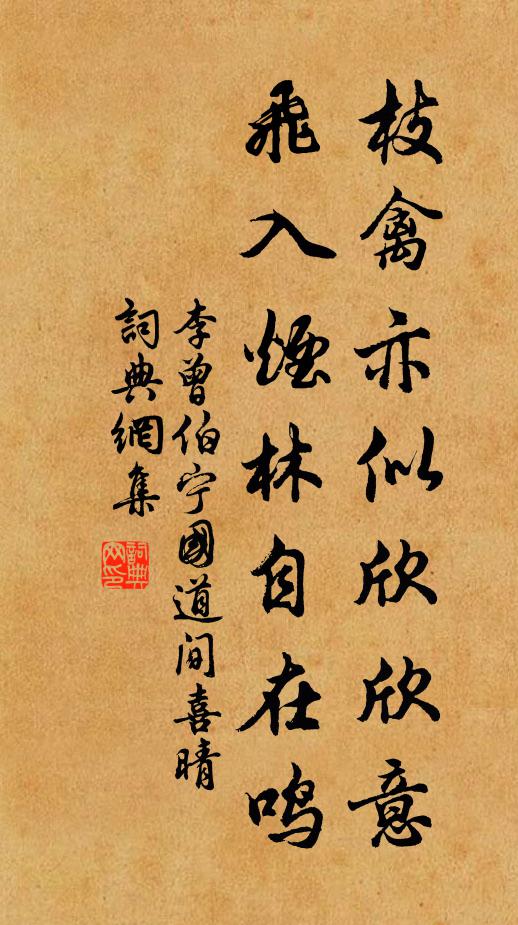 枝禽亦似欣欣意
飛入煙林自在鸣
李曾伯宁國道间喜晴
詞典網集
詞典网印